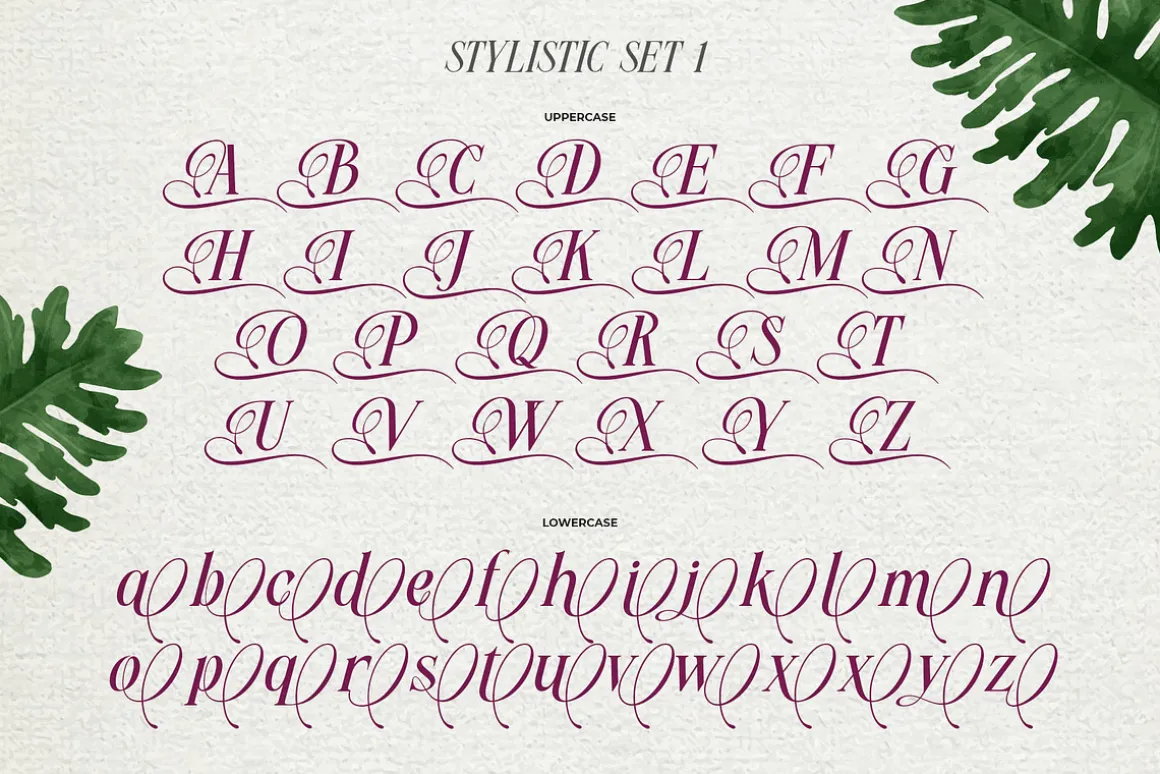 STYLISTIC SET 1
UPPERCASE
A B C D E F G
H I J K L M N
O P Q R S T
U V W X Y Z
LOWERCASE
a b c d e f h i j k l m n
o p q r s t u v w x x y z